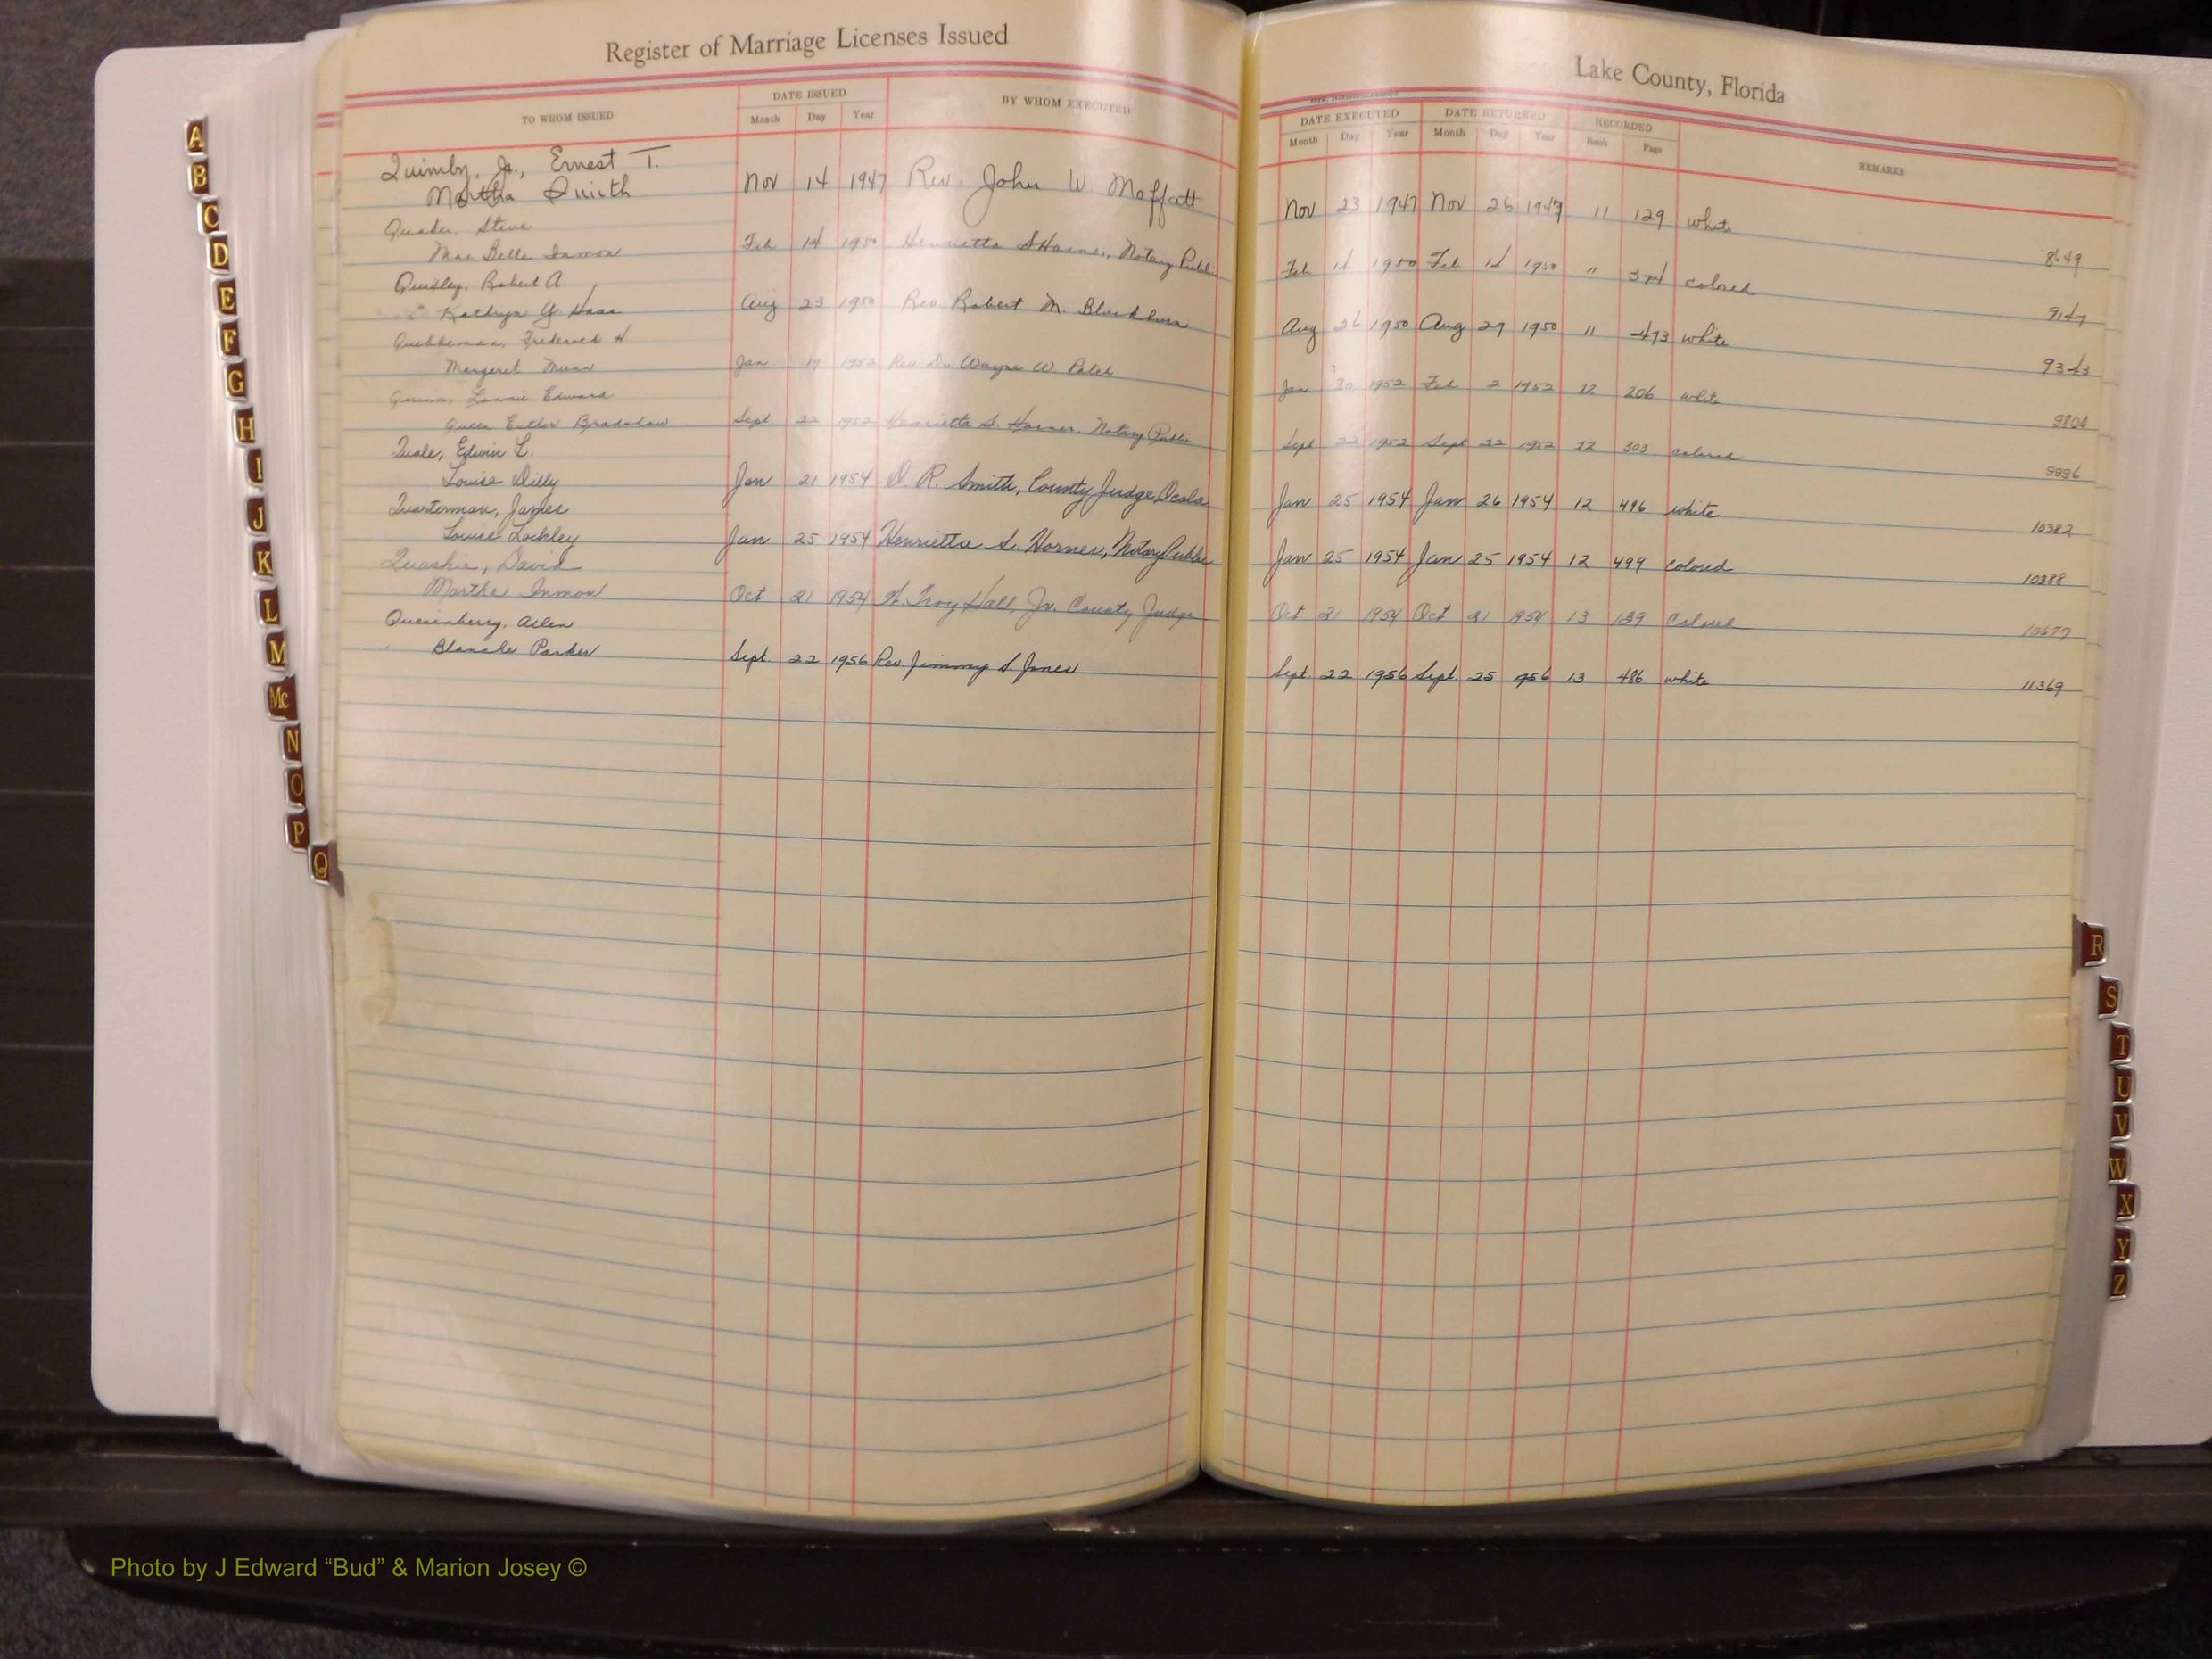 Register of Marriage Licenses Issued
Lake County, Florida
TO WHOM ISSUED
DATE ISSUED
Month Day Year
BY WHOM EXECUTED
DATE EXECUTED
Month Day Year
DATE RETURNED
Month Day Year
RECORDED
Book Page
REMARKS
Quimby, Jr., Ernest T.
Martha Quicth Nov 14 1947 Rev. John W. Moffatt Nov 23 1947 Nov 26 1947 11 129 white 8649
Quader, Steve
Mae Belle Inmon Feb 14 1950 Henrietta S Horner, Notary Public Feb 14 1950 Feb 14 1950 " colored
Quidley, Robert A.
Kathryn Y. Haas Aug 23 1950 Rev Robert M. Blackburn Aug 26 1950 Aug 29 1950 11 473 white 9343
Quebbeman, Frederick H
Margaret Munn Jan 19 1952 Rev Dr Wayne W Jan 30 1952 Feb 2 1952 12 206 white 9804
Quinn, Lonnie Edward
Queen Esther Bradshaw Sept 22 1952 Henrietta S. Horner, Notary Public Sept 22 1952 Sept 22 1952 12 303 colored 9996
Quale, Edwin L.
Louise Dilly Jan 21 1954 D. R. Smith, County Judge, Ocala Jan 25 1954 Jan 26 1954 12 496 white 10382
Quarterman, James
Louise Lockley Jan 25 1954 Henrietta S. Horner, Notary Public Jan 25 1954 Jan 25 1954 12 499 colored 10388
Quashie, David
Martha Inmon Oct 21 1954 W. Troy Hall, Jr. County Judge Oct 21 1954 Oct 21 1954 13 139 Colored 10677
Quesenberry, Arlen
Blanche Parker Sept. 22 1956 Rev. Jimmy S. Jones Sept. 22 1956 Sept. 25 1956 13 486 white 11369
A
B
C
D
E
F
G
H
I
J
K
L
M
Mc
N
O
P
Q
R
S
T
U
V
W
X
Y
Z
Photo by J Edward “Bud” & Marion Josey ©